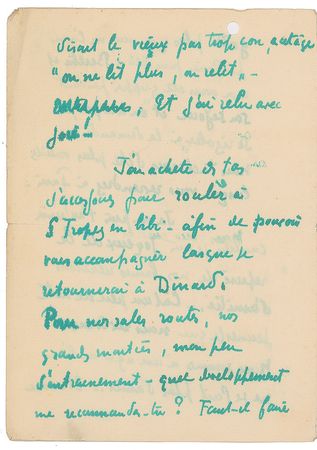 disait le vieux pas trop con, a cet âge
"on ne lit plus, on relit" -
Et j'ai relu avec
joie -
J'en achète
pour rouler à
S Tropez en - afin de pouvoir
vous accompagner lorsque je
retournerai à Dinard.
Pour nos sales routes, nos
grandes montées, mon peu
d'entrainement - quel developpement
me recommandes-tu ? Faut-il faire